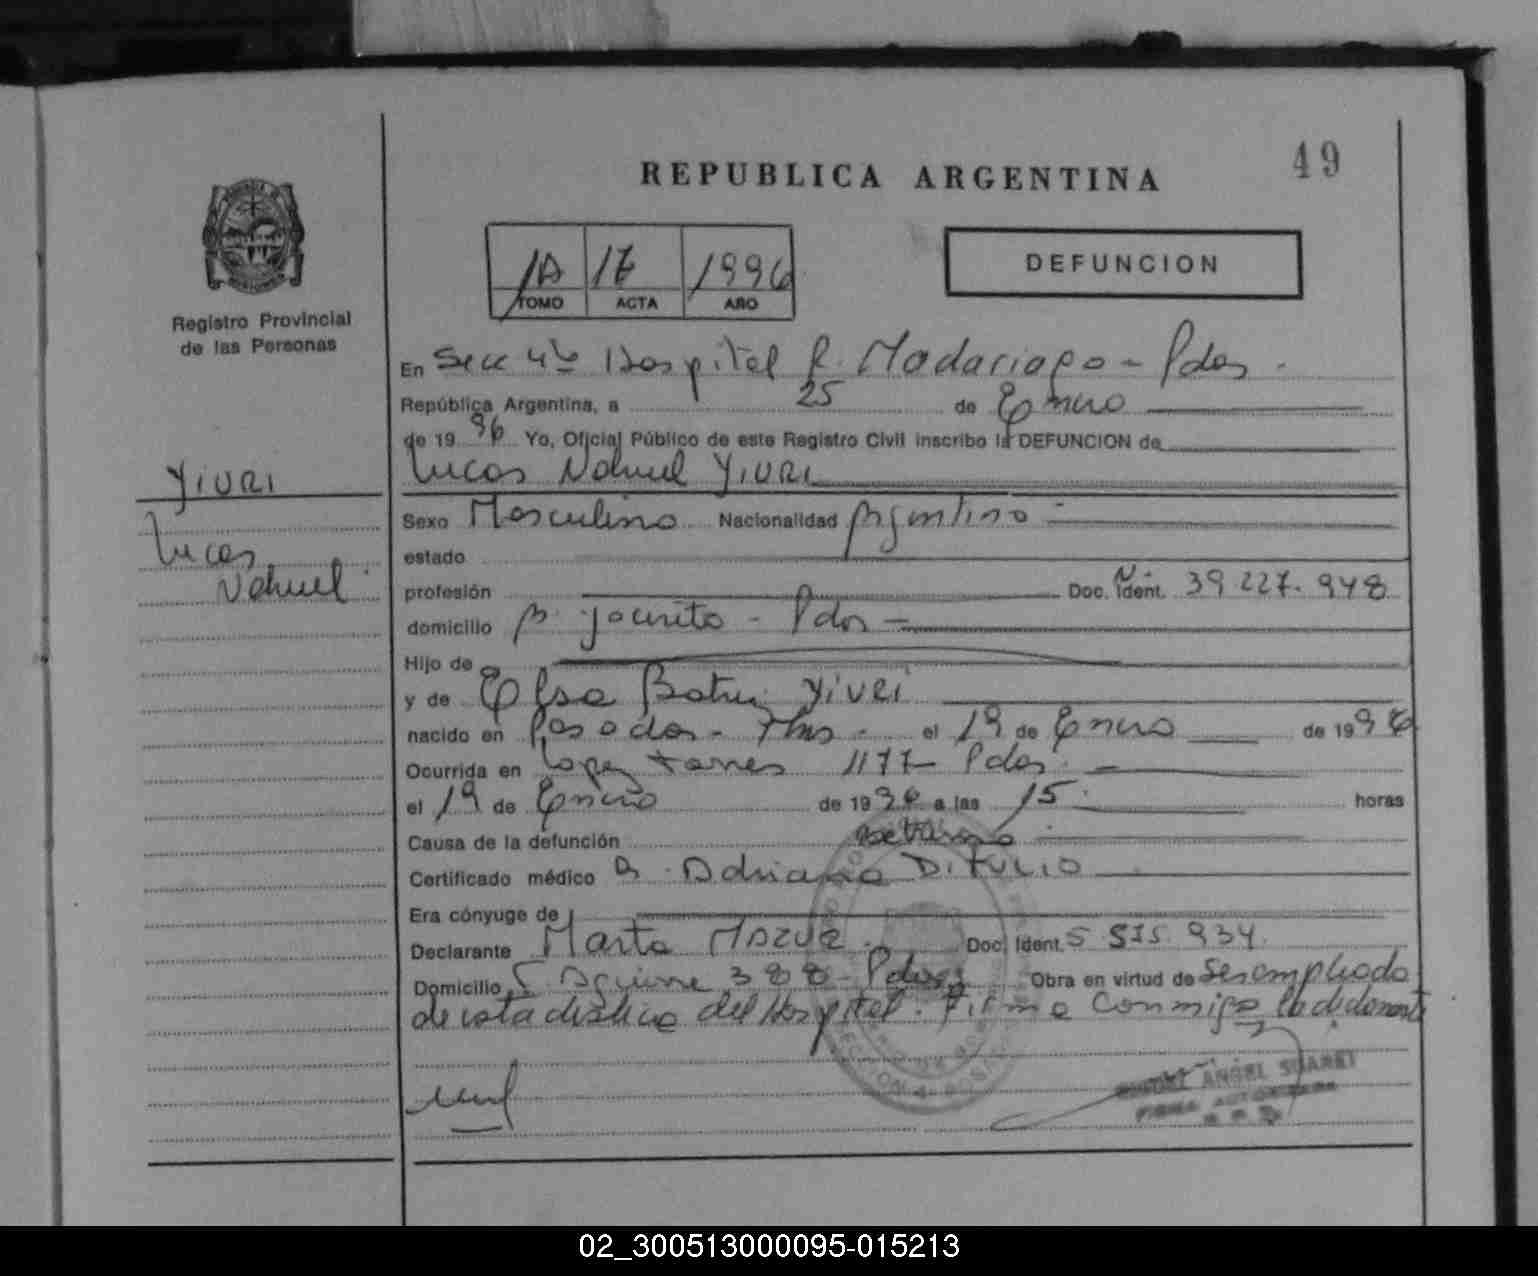 49
REPUBLICA ARGENTINA
1A 1996
TOMO ACTA AÑO
DEFUNCION
Registro Provincial
de las Personas
YIURI
Lucas
Nahuel
En Secc 4ta Hospital R. Madariaga - Pdas.
República Argentina, a 25 de Enero
de 1996 Yo, Oficial Público de este Registro Civil inscribo la DEFUNCION de
Lucas Nahuel YIURI
Sexo Masculino Nacionalidad Argentino
estado
profesión Doc. Ident. 39.227.948
domicilio B. Jaurito - Pdas -
Hijo de
y de Elsa Beatriz YIURI
nacido en Posadas - Mns. el 19 de Enero de 1996
Ocurrida en Lopez torres 1177 - Pdas.
el 19 de Enero de 1996 a las 15 horas
Causa de la defunción
Certificado médico Adriana DI TULIO
Era cónyuge de
Declarante Marta Doc. Ident. 5.515.934.
Domicilio Aguirre 388 - Pdas Obra en virtud de Ser empleada
de estadística del Hospital. Firma conmigo la declarante
ANGEL SUAREZ
FIRMA AUTORIZADA
02_300513000095-015213